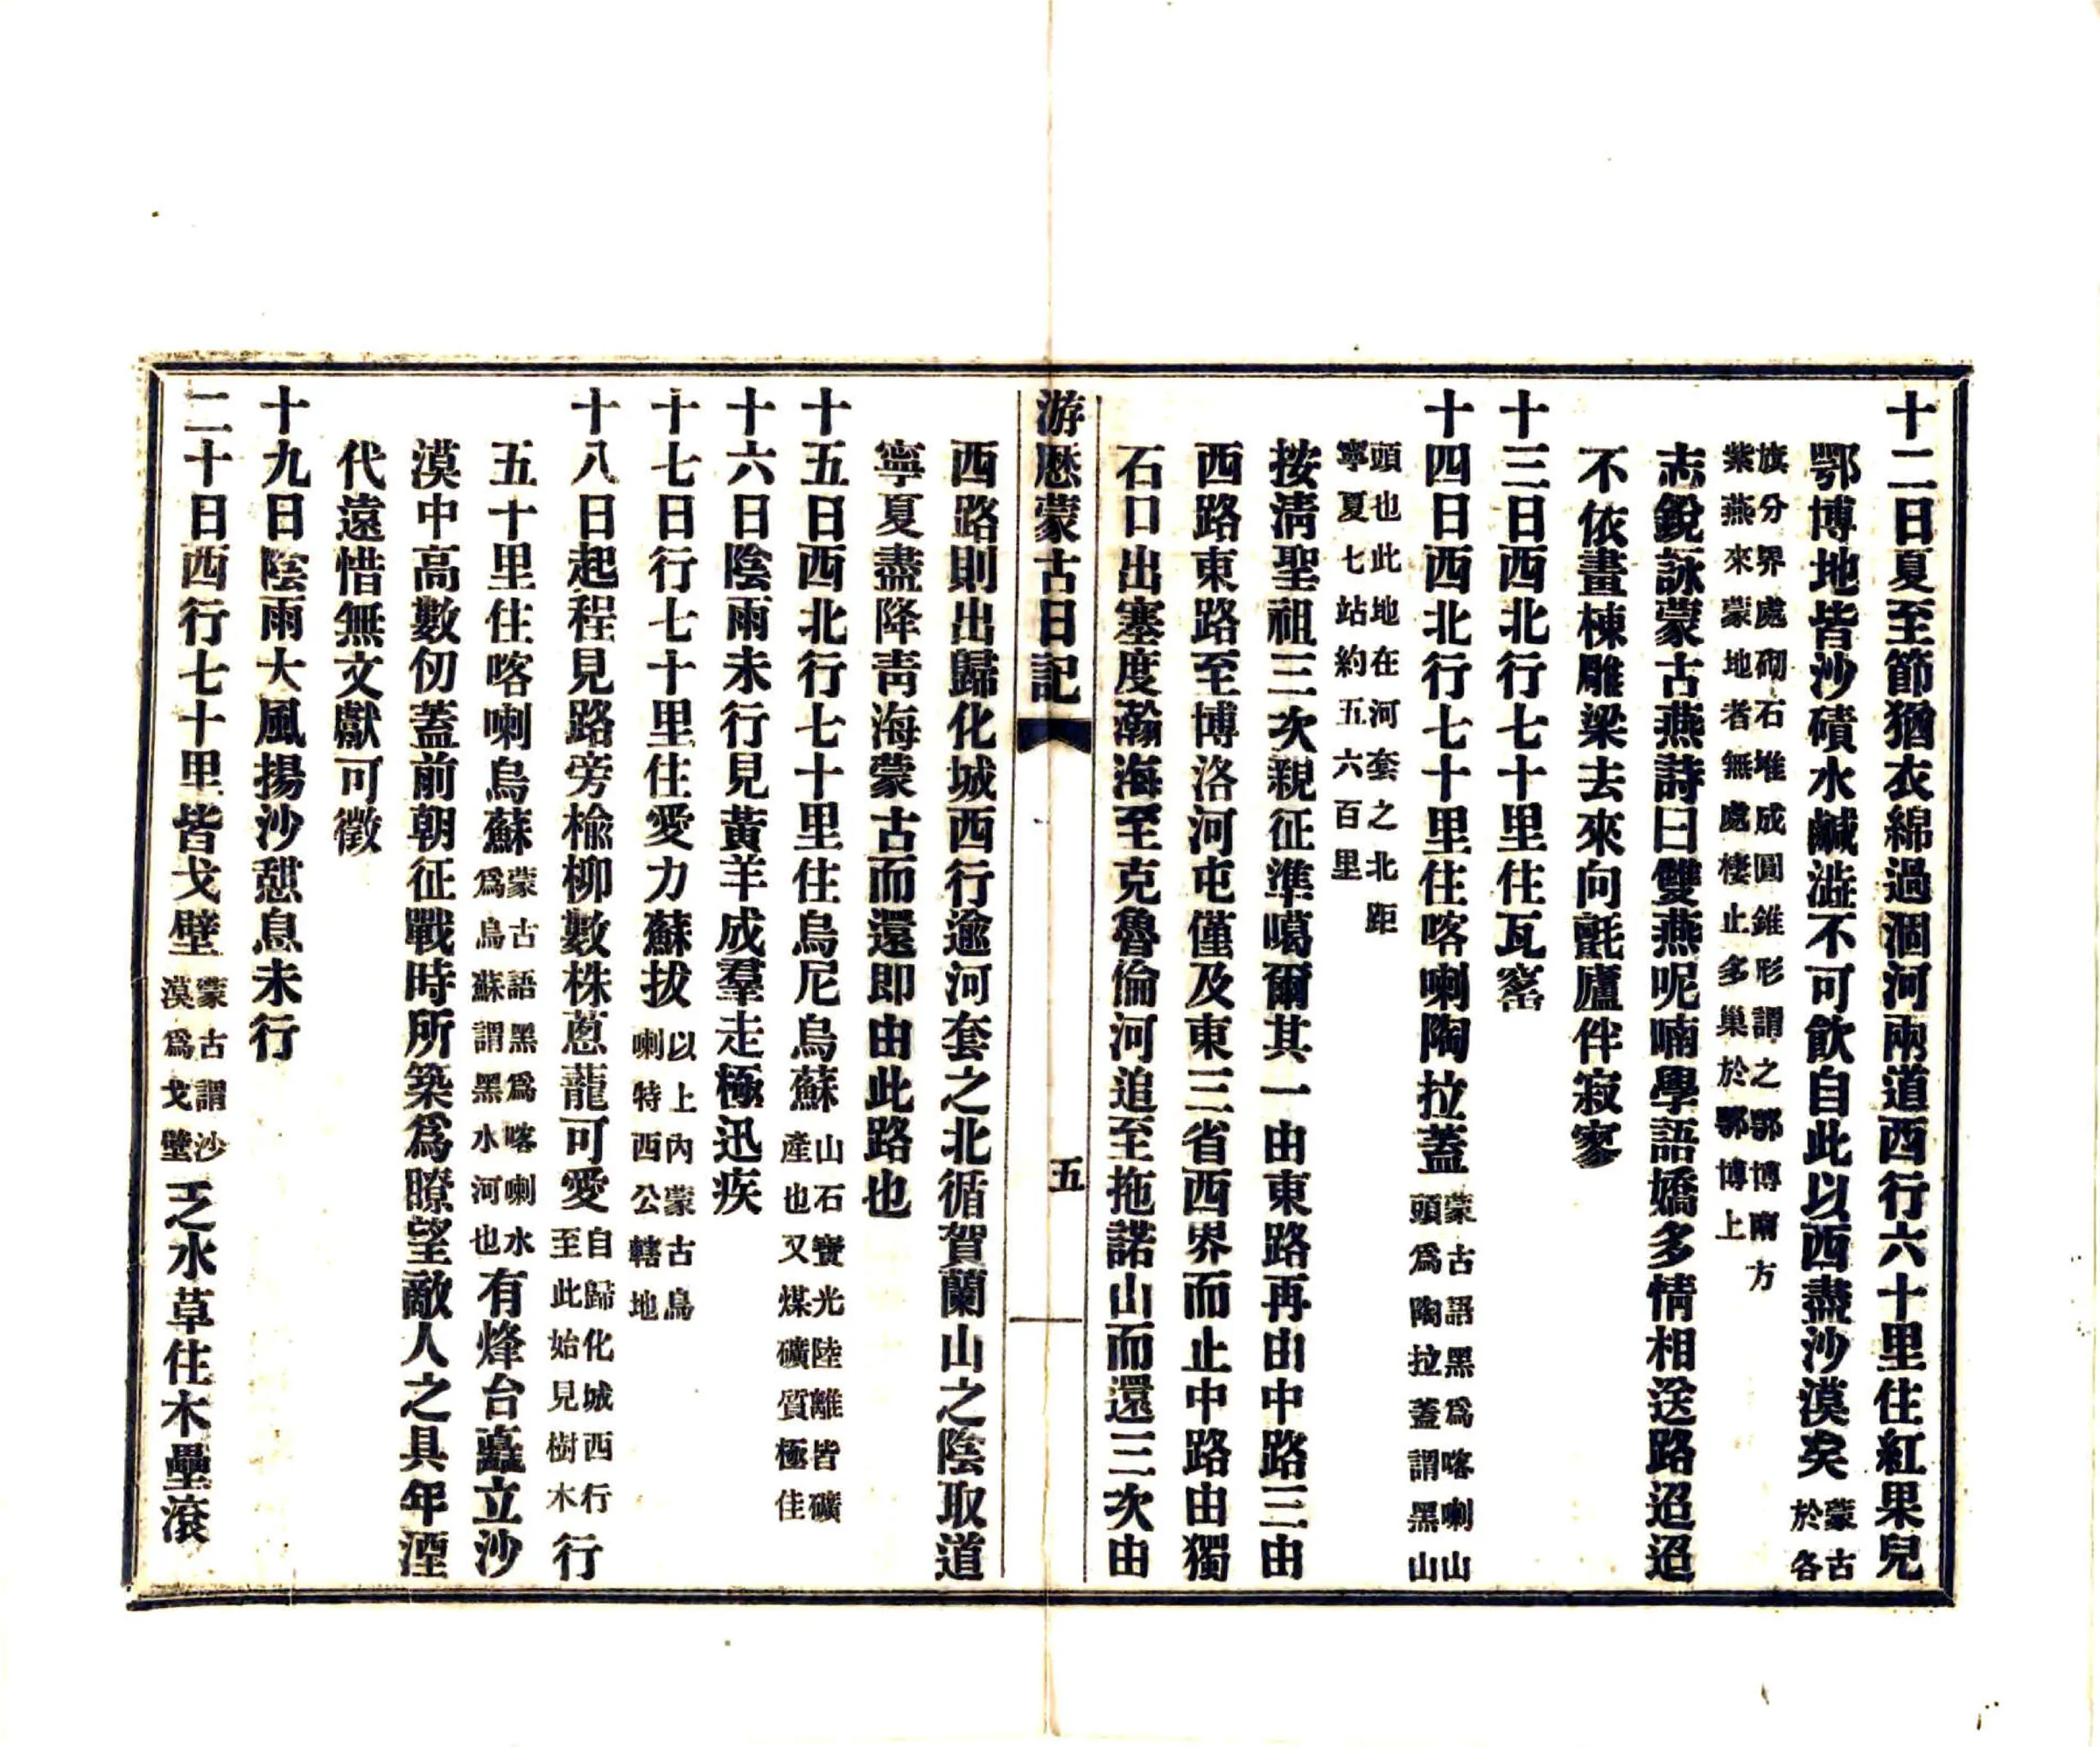 十二日夏至節猶衣綿過涸河兩道西行六十里住紅果兒
鄂博地皆沙磧水鹹澁不可飮自此以西盡沙漠矣蒙古於各
旗分界處砌石堆成圓錐形謂之鄂博南方
紫燕來蒙地者無處棲止多巢於鄂博上
志銳詠蒙古燕詩曰雙燕呢喃學語嬌多情相送路迢迢
不依畫棟雕梁去來向氈廬伴寂寥
十三日西北行七十里住瓦窰
十四日西北行七十里住喀喇陶拉蓋蒙古語黑爲喀喇山頭爲陶拉蓋謂黑山
頭也此地在河套之北距
寧夏七站約五六百里
按淸聖祖三次親征準噶爾其一由東路再由中路三由
西路東路至博洛河屯僅及東三省西界而止中路由獨
石口出塞度瀚海至克魯倫河追至拖諾山而還三次由
游歷蒙古日記
五
西路則出歸化城西行逾河套之北循賀蘭山之陰取道
寧夏盡降靑海蒙古而還即由此路也
十五日西北行七十里住烏尼烏蘇山石寶光陸離皆礦產也又煤礦質極佳
十六日陰雨未行見黃羊成羣走極迅疾
十七日行七十里住愛力蘇拔以上內蒙古烏喇特西公轄地
十八日起程見路旁楡柳數株蔥蘢可愛自歸化城西行至此始見樹木行
五十里住喀喇烏蘇蒙古語黑爲喀喇水爲烏蘇謂黑水河也有烽台矗立沙
漠中高數仞蓋前朝征戰時所築爲瞭望敵人之具年湮
代遠惜無文獻可徵
十九日陰雨大風揚沙憇息未行
二十日西行七十里皆戈壁蒙古謂沙漠爲戈壁乏水草住木壘滾